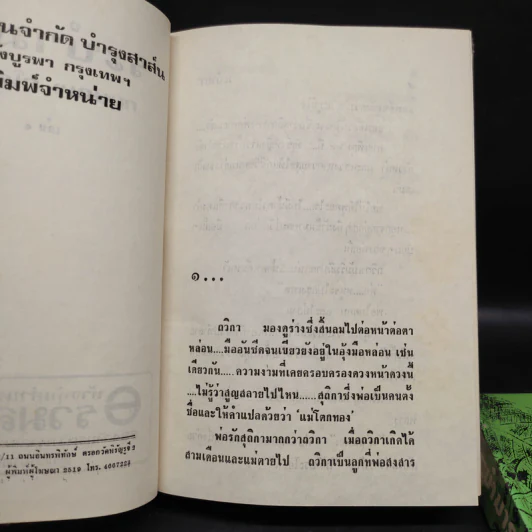 นจำกัด บำรุงสาส์น
ังบูรพา กรุงเทพฯ
ิมพ์จำหน่าย
/11 ถนนอินทรพิทักษ์ ตรอกวัดหิรัญรูจี 2
ผู้พิมพ์ผู้โฆษณา 2519 โทร. 4667223
๑...
ถวิกา มองดูร่างซึ่งสิ้นลมไปต่อหน้าต่อตา
หล่อน....มืออันซีดจนเขียวยังอยู่ในอุ้งมือหล่อน เช่น
เดียวกัน..... ความงามที่เคยครอบครองดวงหน้าดวงนี้
....ไม่รู้ว่าสูญสลายไปไหน...... สุถิกาซึ่งพ่อเป็นคนตั้ง
ชื่อและให้คำแปลด้วยว่า 'แม่โตกทอง'
พ่อรักสุถิกามากกว่าถวิกา เมื่อถวิกาเกิดได้
สามเดือนและแม่ตายไป ถวิกาเป็นลูกที่พ่อสงสาร